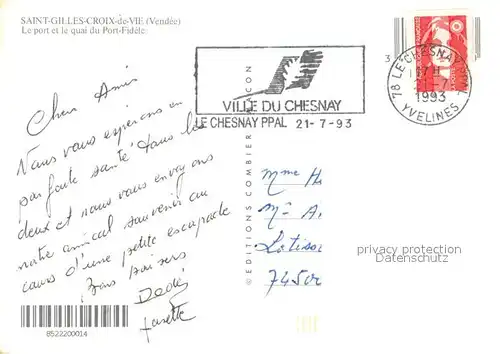 SAINT-GILLES-CROIX-de-VIE (Vendée)
Le port et le quai du Port-Fidèle.
VILLE DU CHESNAY
LE CHESNAY PPAL 21-7-93
78 LE CHESNAY
17H
21-7
1993
YVELINES
Chers Amis
Nous vous espérons en
parfaite santé tous les
deux et nous vous envoyons
notre amical souvenir au
cours d'une petite escapade
Bons baisers
Dédé
Josette
© EDITIONS COMBIER MACON
Mme H.
Mr A.
7450
privacy protection
Datenschutz
8522200014